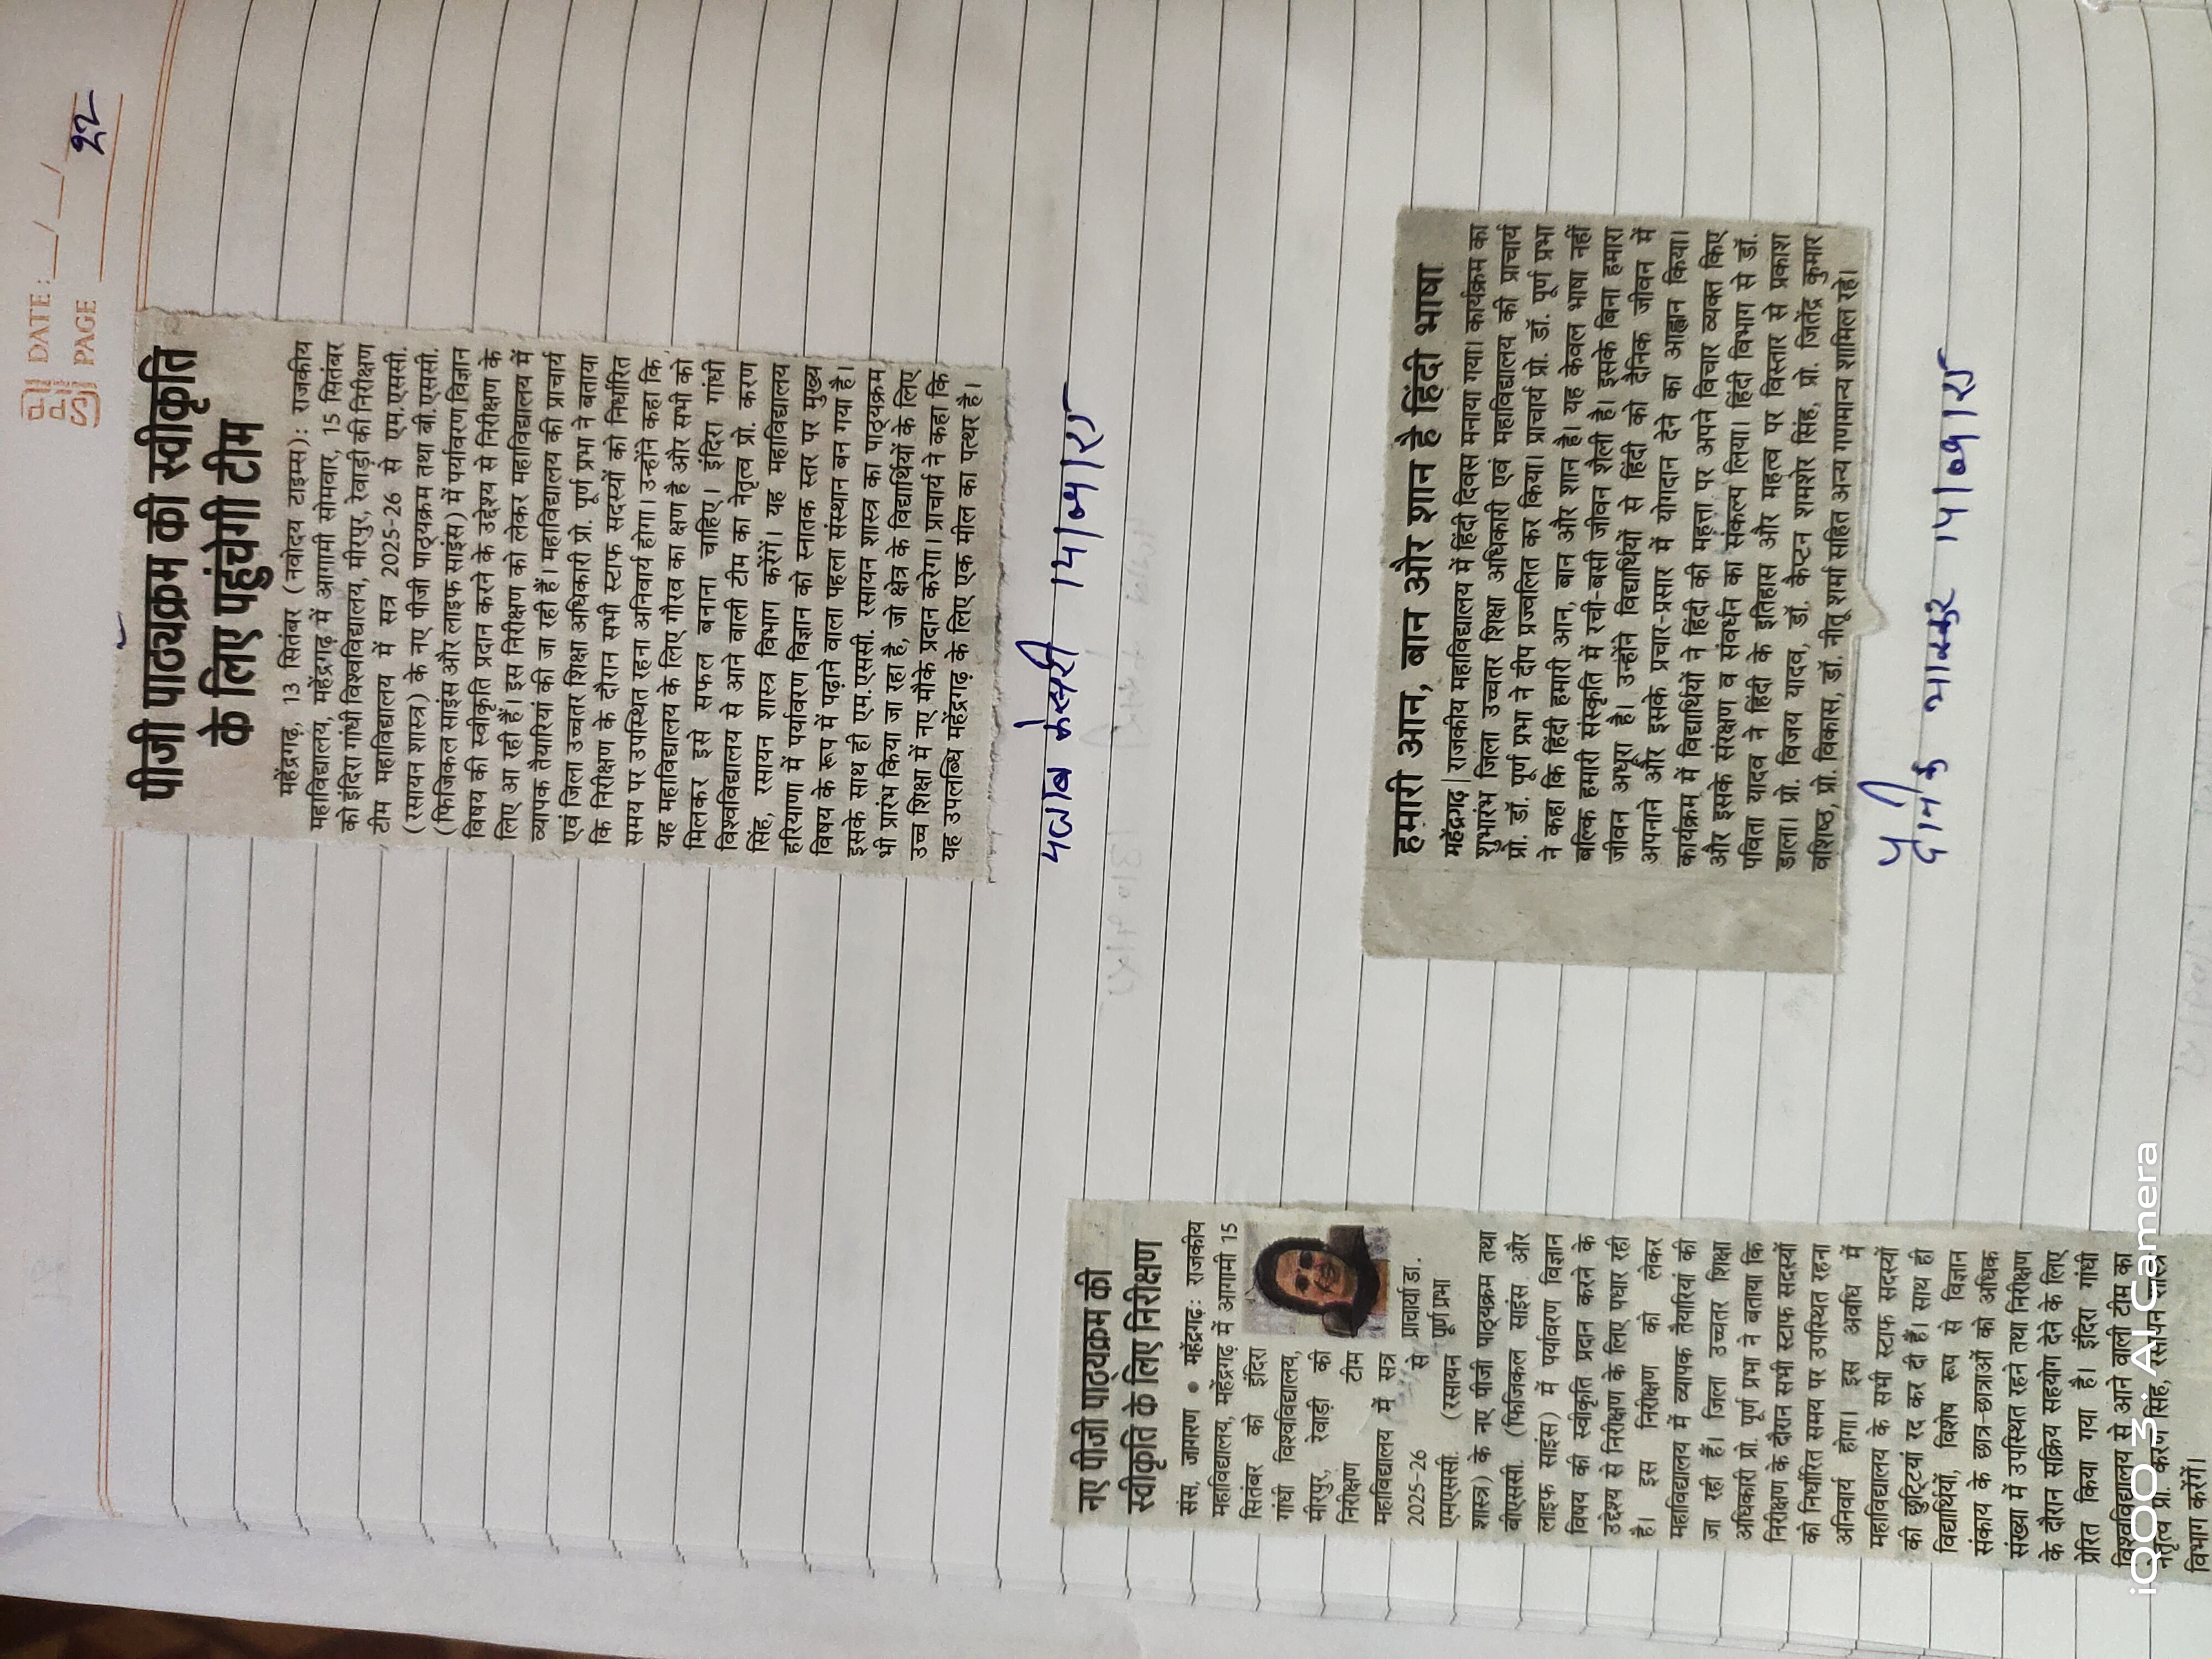 DATE : __/__/__
PAGE 22
पीजी पाठ्यक्रम की स्वीकृति
के लिए पहुंचेगी टीम
महेंद्रगढ़, 13 सितंबर (नवोदय टाइम्स): राजकीय
महाविद्यालय, महेंद्रगढ़ में आगामी सोमवार, 15 सितंबर
को इंदिरा गांधी विश्वविद्यालय, मीरपुर, रेवाड़ी की निरीक्षण
टीम महाविद्यालय में सत्र 2025-26 से एम.एससी.
(रसायन शास्त्र) के नए पीजी पाठ्यक्रम तथा बी.एससी.
(फिजिकल साइंस और लाइफ साइंस) में पर्यावरण विज्ञान
विषय की स्वीकृति प्रदान करने के उद्देश्य से निरीक्षण के
लिए आ रही हैं। इस निरीक्षण को लेकर महाविद्यालय में
व्यापक तैयारियां की जा रही हैं। महाविद्यालय की प्राचार्य
एवं जिला उच्चतर शिक्षा अधिकारी प्रो. पूर्ण प्रभा ने बताया
कि निरीक्षण के दौरान सभी स्टाफ सदस्यों को निर्धारित
समय पर उपस्थित रहना अनिवार्य होगा। उन्होंने कहा कि
यह महाविद्यालय के लिए गौरव का क्षण है और सभी को
मिलकर इसे सफल बनाना चाहिए। इंदिरा गांधी
विश्वविद्यालय से आने वाली टीम का नेतृत्व प्रो. करण
सिंह, रसायन शास्त्र विभाग करेंगें। यह महाविद्यालय
हरियाणा में पर्यावरण विज्ञान को स्नातक स्तर पर मुख्य
विषय के रूप में पढ़ाने वाला पहला संस्थान बन गया है।
इसके साथ ही एम.एससी. रसायन शास्त्र का पाठ्यक्रम
भी प्रारंभ किया जा रहा है, जो क्षेत्र के विद्यार्थियों के लिए
उच्च शिक्षा में नए मौके प्रदान करेगा। प्राचार्य ने कहा कि
यह उपलब्धि महेंद्रगढ़ के लिए एक मील का पत्थर है।
पंजाब केसरी 14/09/25
नए पीजी पाठ्यक्रम की
स्वीकृति के लिए निरीक्षण
संस, जागरण • महेंद्रगढ़: राजकीय
महाविद्यालय, महेंद्रगढ़ में आगामी 15
सितंबर को इंदिरा
गांधी विश्वविद्यालय,
मीरपुर, रेवाड़ी की
निरीक्षण टीम
महाविद्यालय में सत्र
2025-26 से
एमएससी. (रसायन
प्राचार्या डा.
पूर्ण प्रभा
शास्त्र) के नए पीजी पाठ्यक्रम तथा
बीएससी. (फिजिकल साइंस और
लाइफ साइंस) में पर्यावरण विज्ञान
विषय की स्वीकृति प्रदान करने के
उद्देश्य से निरीक्षण के लिए पधार रही
है। इस निरीक्षण को लेकर
महाविद्यालय में व्यापक तैयारियां की
जा रही हैं। जिला उच्चतर शिक्षा
अधिकारी प्रो. पूर्ण प्रभा ने बताया कि
निरीक्षण के दौरान सभी स्टाफ सदस्यों
को निर्धारित समय पर उपस्थित रहना
अनिवार्य होगा। इस अवधि में
महाविद्यालय के सभी स्टाफ सदस्यों
की छुट्टियां रद कर दी हैं। साथ ही
विद्यार्थियों, विशेष रूप से विज्ञान
संकाय के छात्र-छात्राओं को अधिक
संख्या में उपस्थित रहने तथा निरीक्षण
के दौरान सक्रिय सहयोग देने के लिए
प्रेरित किया गया है। इंदिरा गांधी
विश्वविद्यालय से आने वाली टीम का
नेतृत्व प्रो. करण सिंह, रसायन शास्त्र
विभाग करेंगें।
हमारी आन, बान और शान है हिंदी भाषा
महेंद्रगढ़ | राजकीय महाविद्यालय में हिंदी दिवस मनाया गया। कार्यक्रम का
शुभारंभ जिला उच्चतर शिक्षा अधिकारी एवं महाविद्यालय की प्राचार्य
प्रो. डॉ. पूर्ण प्रभा ने दीप प्रज्वलित कर किया। प्राचार्य प्रो. डॉ. पूर्ण प्रभा
ने कहा कि हिंदी हमारी आन, बान और शान है। यह केवल भाषा नहीं
बल्कि हमारी संस्कृति में रची-बसी जीवन शैली है। इसके बिना हमारा
जीवन अधूरा है। उन्होंने विद्यार्थियों से हिंदी को दैनिक जीवन में
अपनाने और इसके प्रचार-प्रसार में योगदान देने का आह्वान किया।
कार्यक्रम में विद्यार्थियों ने हिंदी की महत्ता पर अपने विचार व्यक्त किए
और इसके संरक्षण व संवर्धन का संकल्प लिया। हिंदी विभाग से डॉ.
पविता यादव ने हिंदी के इतिहास और महत्व पर विस्तार से प्रकाश
डाला। प्रो. विजय यादव, डॉ. कैप्टन शमशेर सिंह, प्रो. जितेंद्र कुमार
वशिष्ठ, प्रो. विकास, डॉ. नीतू शर्मा सहित अन्य गणमान्य शामिल रहे।
दैनिक भास्कर 14/09/25
iQOO 3 · AI Camera